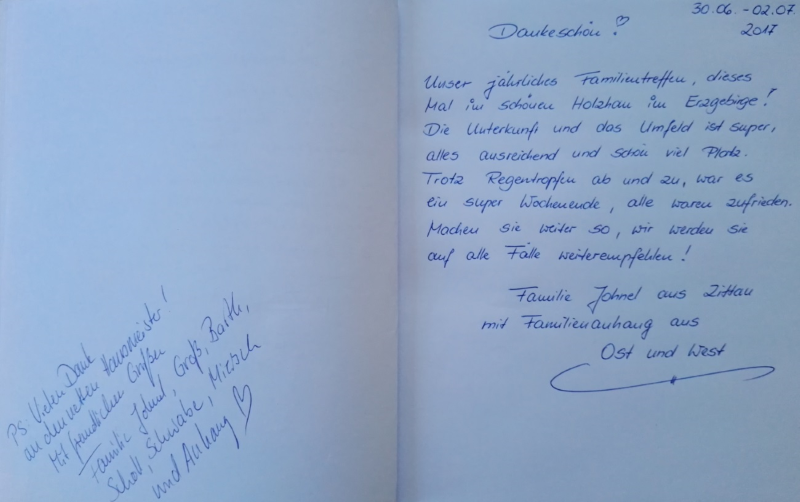 PS: Vielen Dank
an den netten Hausmeister!
Mit freundlichen Grüßen
Familie Johnel, Groß, Barth,
Scholl, Schwabe, Mietsch
und Anhang ♡
30.06. - 02.07.
2017
Dankeschön!
Unser jährliches Familientreffen, dieses
Mal im schönen Holzhau im Erzgebirge!
Die Unterkunft und das Umfeld ist super,
alles ausreichend und schön viel Platz.
Trotz Regentropfen ab und zu, war es
ein super Wochenende, alle waren zufrieden.
Machen sie weiter so, wir werden sie
auf alle Fälle weiterempfehlen!
Familie Johnel aus Zittau
mit Familienanhang aus
Ost und West